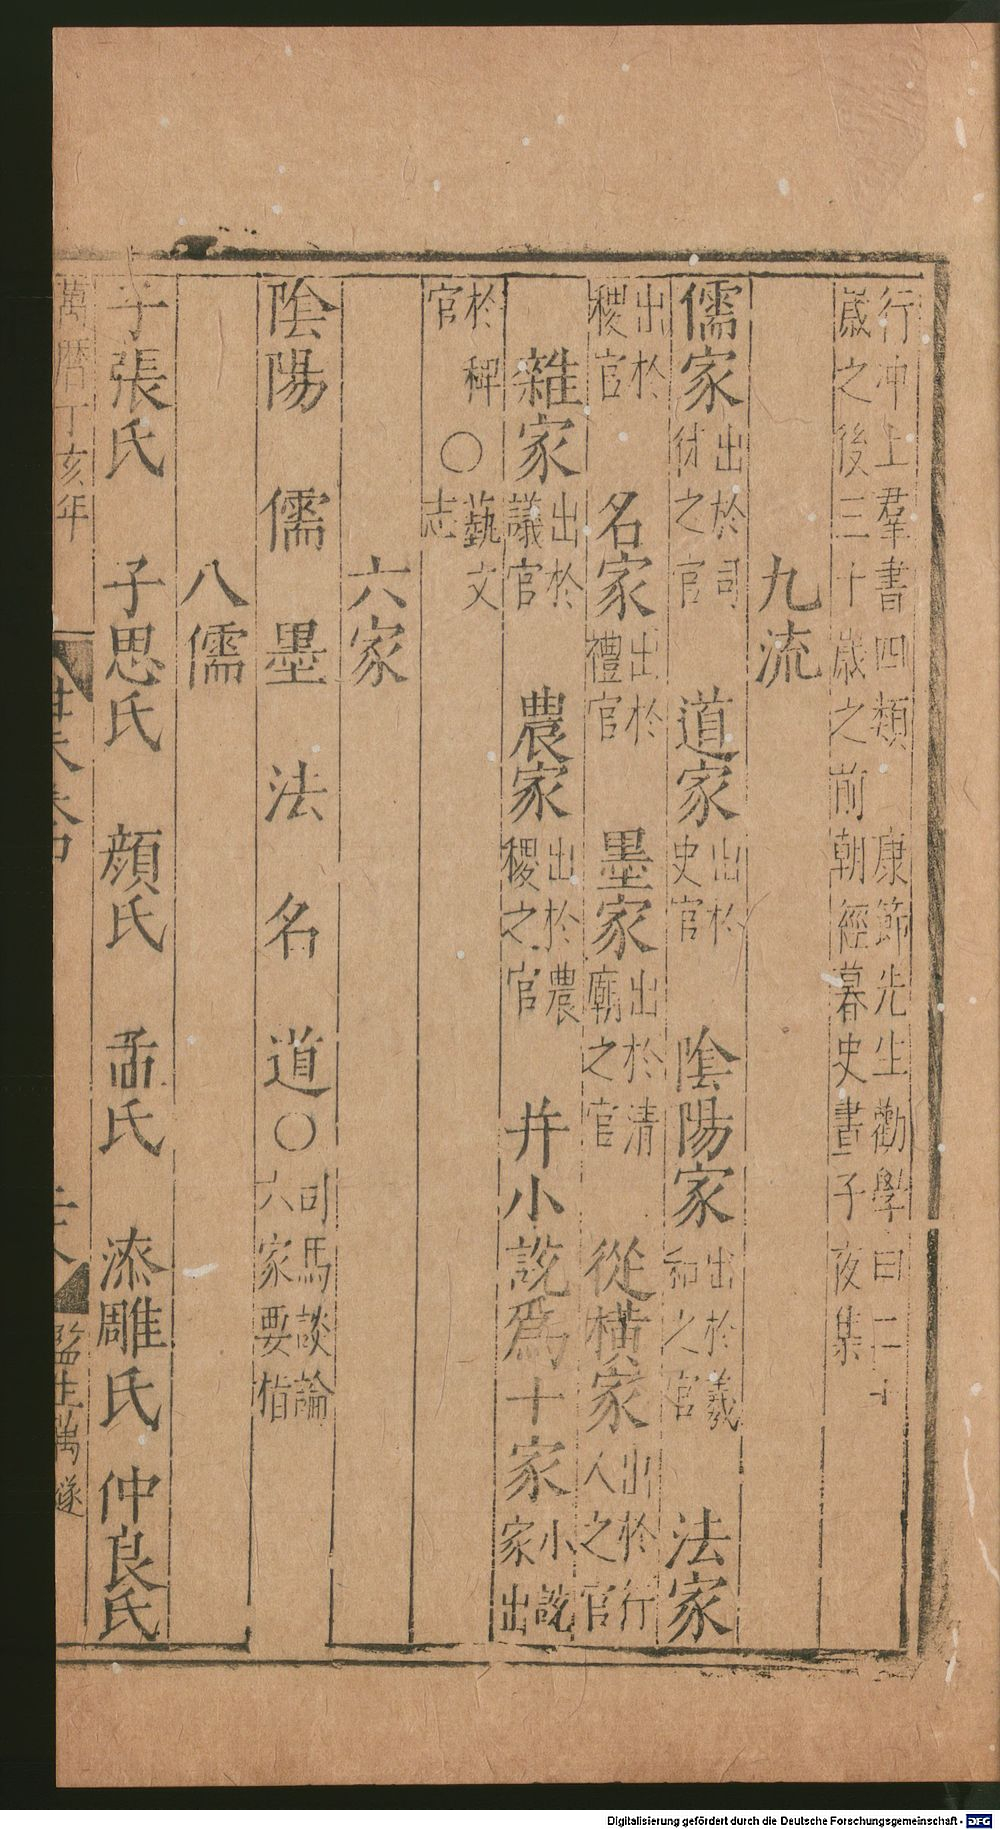 行冲上羣書四類 康節先生勸學曰二十
歲之後三十歲之前朝經暮史晝子夜集
九流
儒家 出於司徒之官 道家 出於史官 陰陽家 出於羲和之官 法家
出於稷官 名家 出於禮官 墨家 出於清廟之官 從横家 出於行人之官
雜家 出於議官 農家 出於農稷之官 并小說爲十家 小說家出
於稗官 ○藝文志
六家
陰陽 儒 墨 法 名 道○司馬談論六家要指
八儒
子張氏 子思氏 顏氏 孟氏 漆雕氏 仲良氏
萬曆丁亥年
監生萬遂
Digitalisierung gefördert durch die Deutsche Forschungsgemeinschaft - DFG